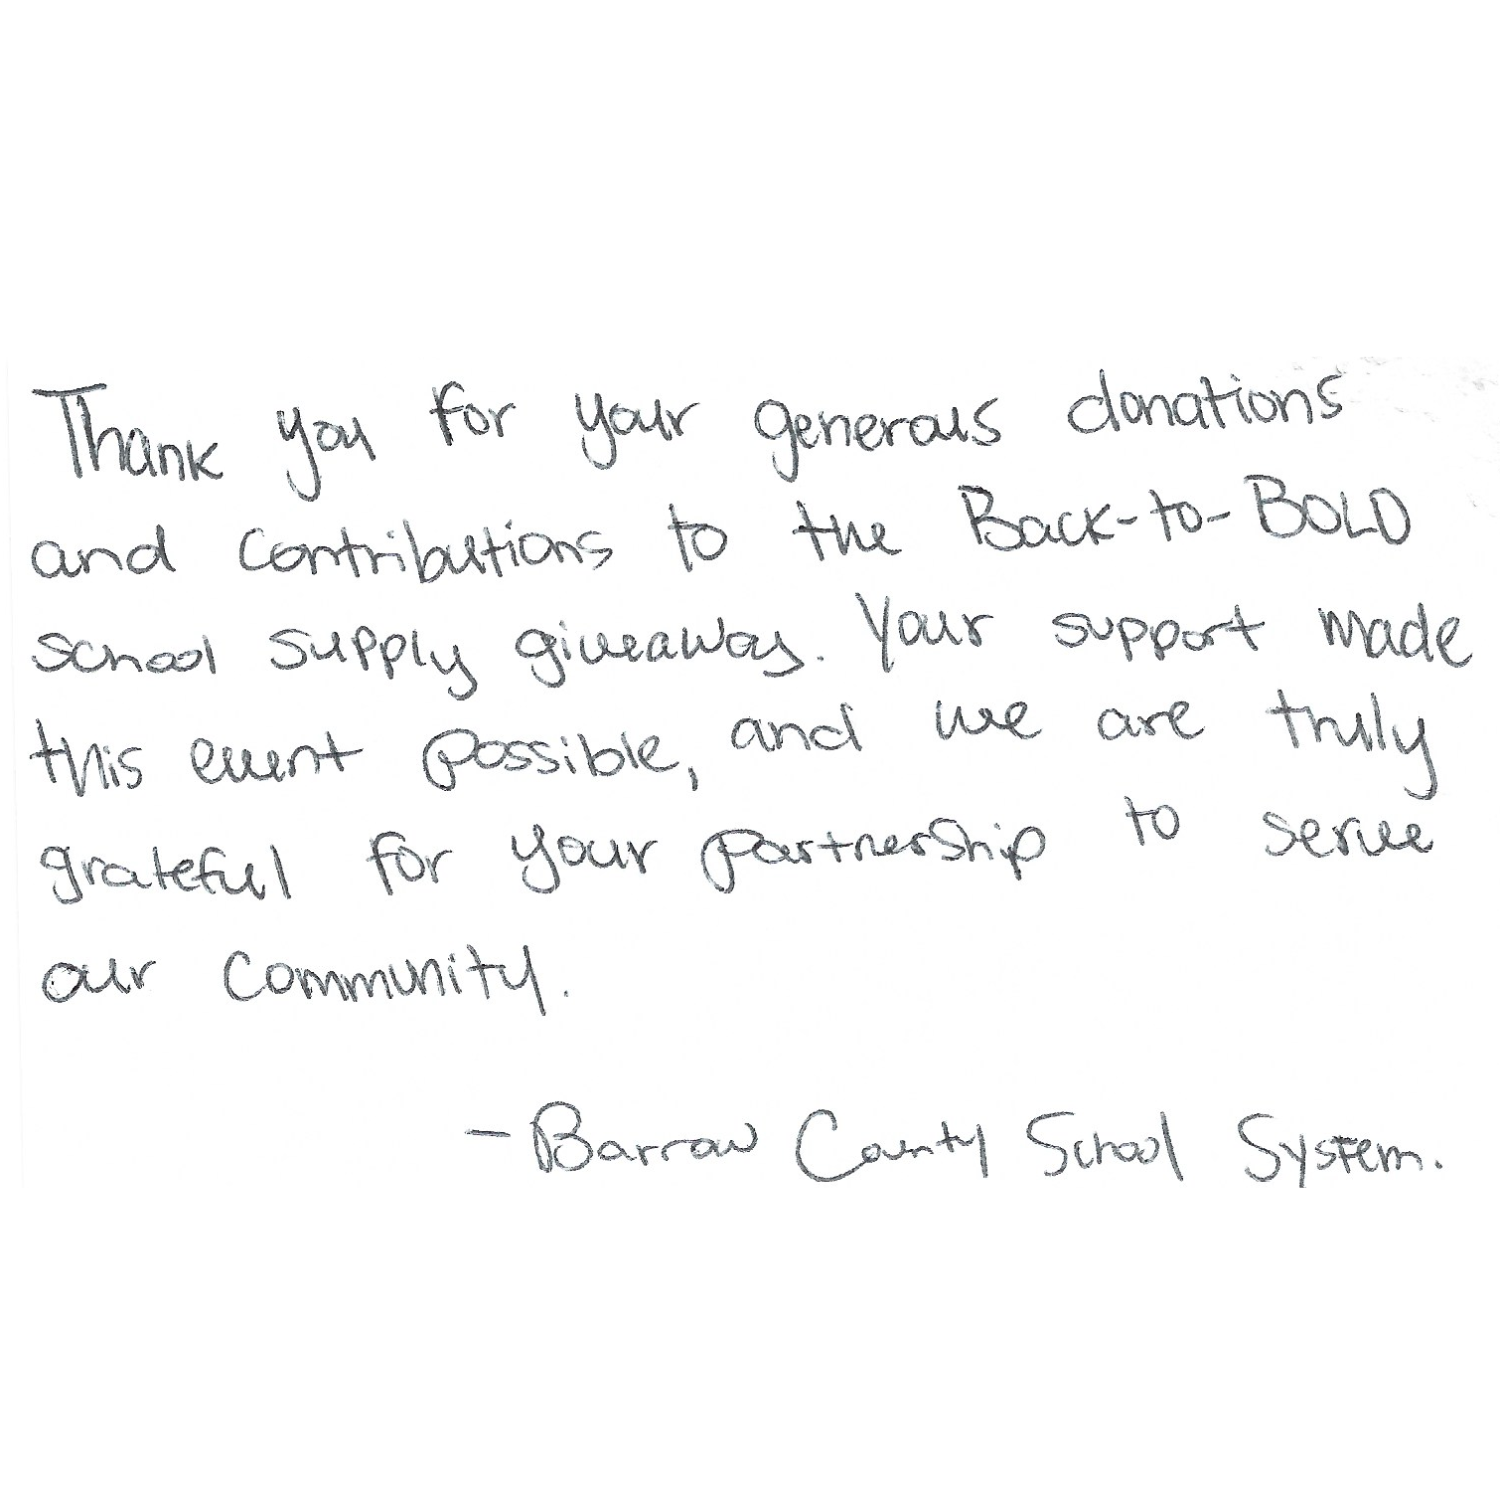 Thank you for your generous donations
and contributions to the Back-to-BOLD
school supply giveaway. Your support made
this event possible, and we are truly
grateful for your partnership to serve
our community.
- Barrow County School System.